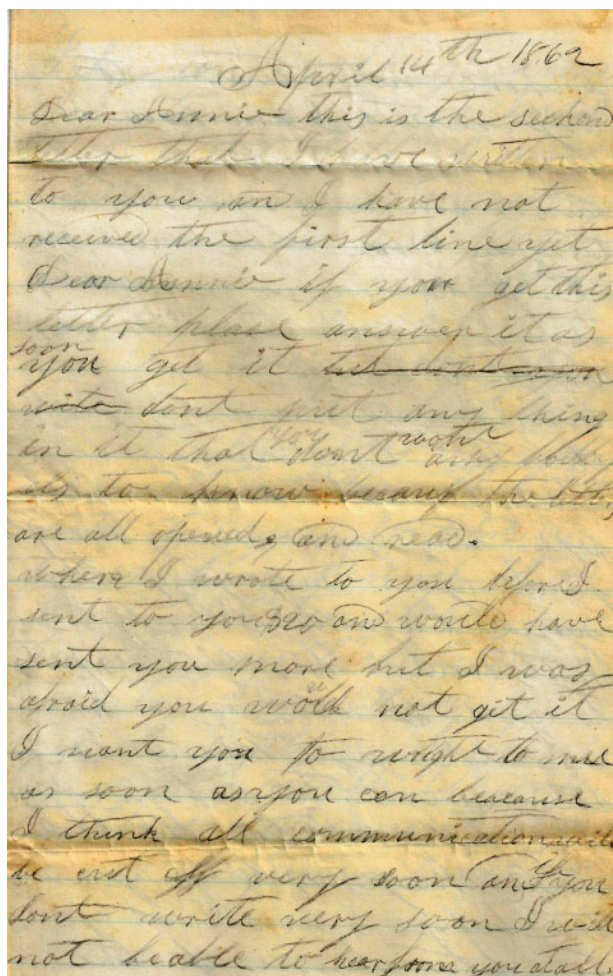 April 14th 1862
Dear Annie this is the seckond
letter that I have written
to you an I have not
received the first line yet
Dear Annie if you get this
letter place answer it as
soon
you get it but dont
write dont put any thing
in it that you dont want any body
els to know becaus the letters
are all opened, an read.
when I wrote to you before I
sent to you $20 and would have
sent you more but I was
afraid you would not get it
I want you to wright to mee
as soon as you can beacause
I think all communication will
be cut off very soon and if you
dont write very soon I will
not be able to hear from you at all